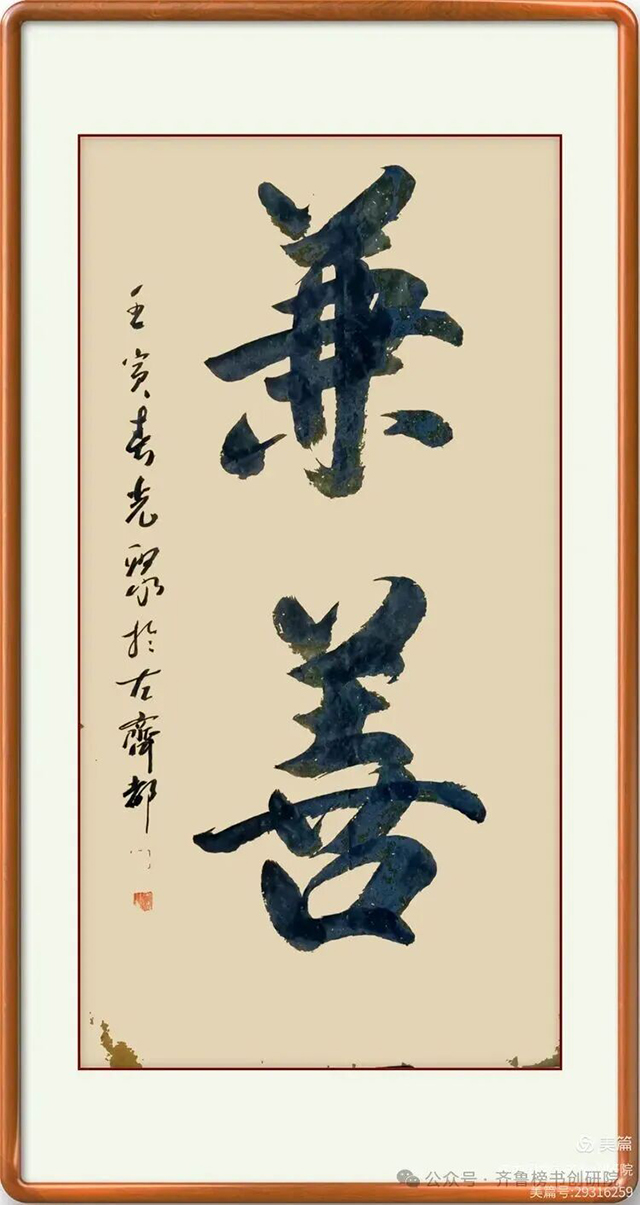 兼善
壬寅春光聚於古齊都
美篇
公众号·齐鲁榜书创研院
院
美篇号:29316259